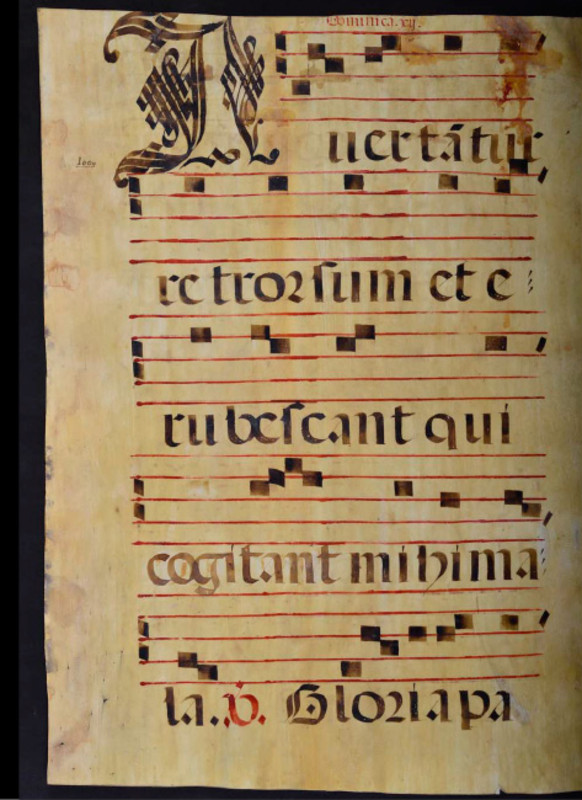 Dominica. xvj.
A uertātur
re trorsum et e
rubescant qui
cogitant mihi ma
la. v. Gloria pa